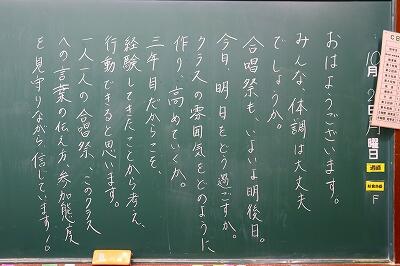 10月2日月曜日
週直
給食当番
F
おはようございます。
みんな、体調は大丈夫
でしょうか。
合唱祭も、いよいよ明後日。
今日、明日をどう過ごすか。
クラスの雰囲気をどのように
作り、高めていくか。
三年目だからこそ、
経験してきたことから考え、
行動できると思います。
一人一人の合唱祭、このクラス
への言葉の伝え方、参加態度
を見守りながら、信じています!。